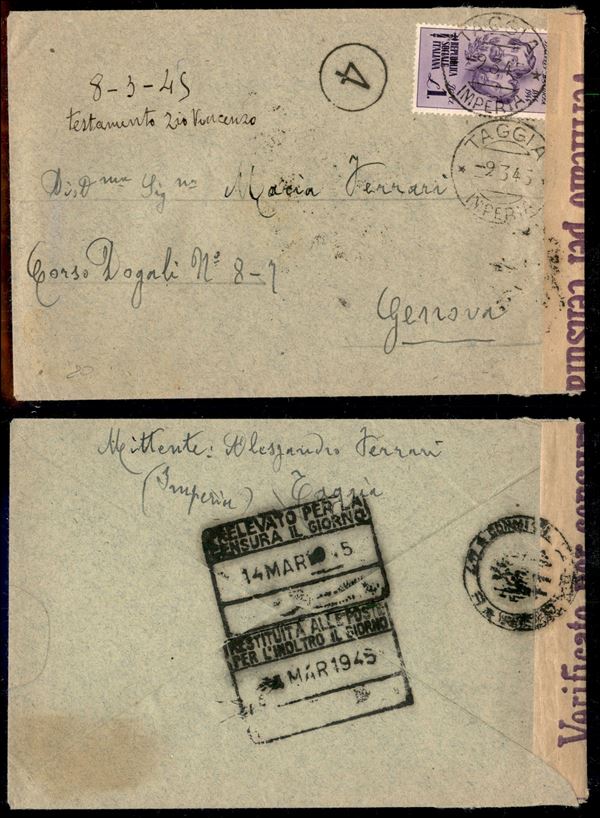 8-3-45
testamento zio Vincenzo
4
REPUBBLICA
SOCIALE
ITALIANA
L1
TAGGIA
IMPERIA
TAGGIA
-9.3.45
IMPERIA
Maria Ferrari
Corso Dogali Nº 8-7
Genova
Verificato per censura
Mittente: Alessandro Ferrari
(Imperia) Taggia
PRELEVATO PER LA
CENSURA IL GIORNO
14 MAR 1945
RESTITUITA ALLE POSTE
PER L'INOLTRO IL GIORNO
MAR 1945
Verificato per censura